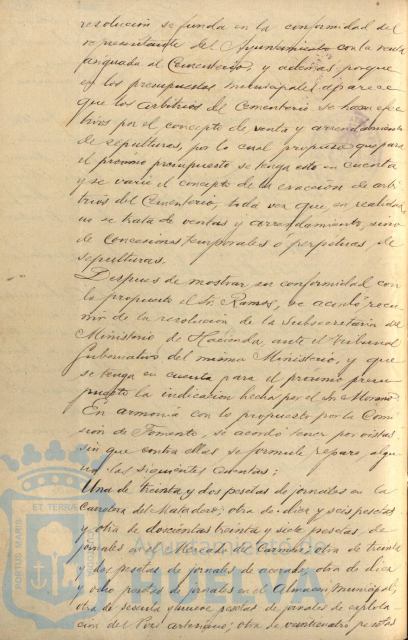 resolución se funda en la conformidad del
representante del Ayuntamiento con la renta
asignada al Cementerio, y además porque
en los presupuestos municipales aparece
que los arbitrios del Cementerio se hacen efec
tivos por el concepto de venta y arrendamiento
de sepulturas, por lo cual propuso que para
el próximo presupuesto se tenga esto en cuenta
y se varíe el concepto de la exacción de arbi
trios del Cementerio, toda vez que, en realidad,
no se trata de ventas y arrendamiento, sino
de concesiones temporales ó perpetuas de
sepulturas.
Despues de mostrar su conformidad con
lo propuesto el Sr. Ramos, se acordó recu
rrir de la resolución de la Subsecretaría del
Ministerio de Hacienda, ante el Tribunal
Gubernativo del mismo Ministerio, y que
se tenga en cuenta para el próximo presu
puesto la indicación hecha por el Sr. Moreno.
En armonía con lo propuesto por la Comi
sión de Fomento, se acordó tener por vistas
sin que contra ellas se formule reparo algu
no las siguientes cuentas:
Una de treinta y dos pesetas de jornales en la
Carretera del Matadero; otra de diez y seis pesetas
y otra de doscientas treinta y siete pesetas, de
jornales en el Mercado del Carmen; otra de treinta
y dos pesetas de jornales de acerados; otra de diez
y ocho pesetas de jornales en el Almacen Municipal;
otra de sesenta y nueve pesetas de jornales de explota
ción del Pozo artesiano; otra de veinticuatro pesetas
PORTUS MARIS
ET TERRAE
Ayuntamiento de
HUELVA